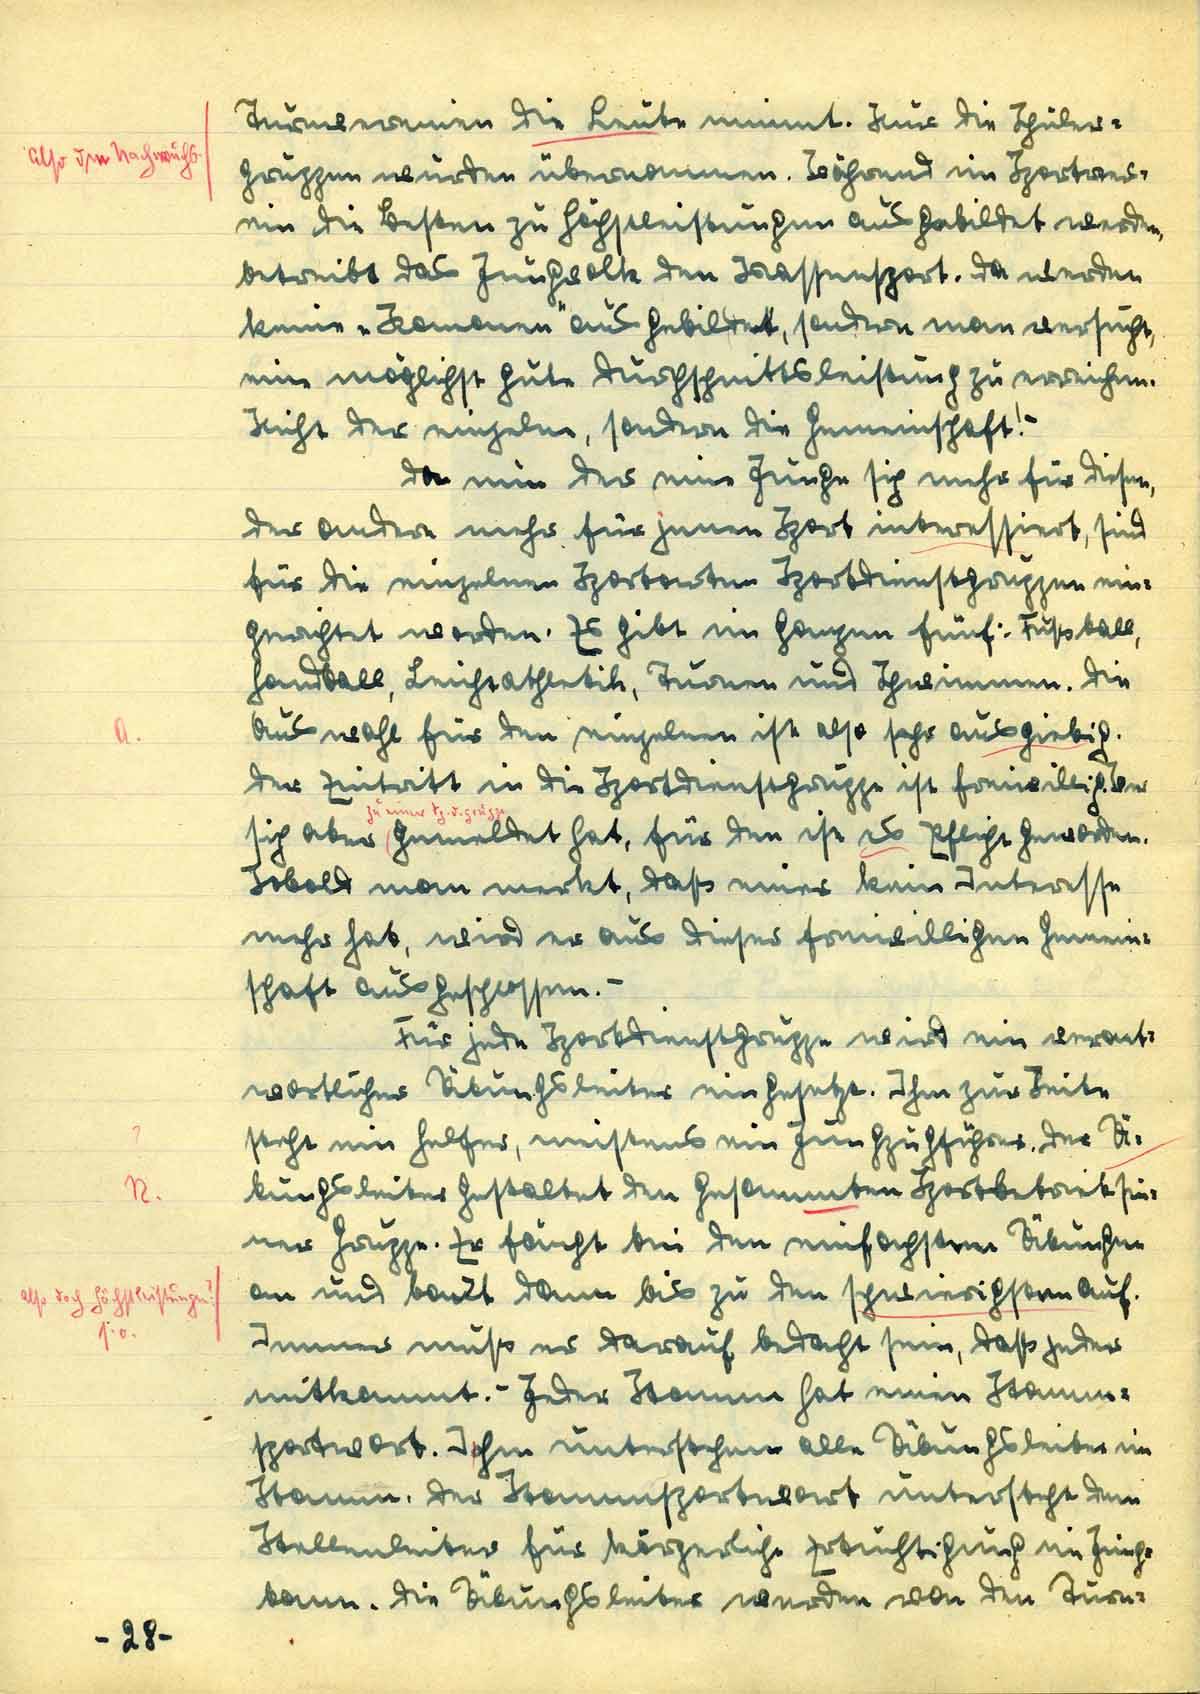 Turnvereinen die Leute nimmt. Nur die Schüler-
also den Nachwuchs.
gruppen wurden übernommen. Während im Sportver-
ein die Besten zu Höchstleistungen ausgebildet werden,
betreibt das Jungvolk den Massensport. Da werden
keine „Kanonen" ausgebildet, sondern man versucht,
eine möglichst gute Durchschnittsleistung zu erreichen.
Nicht der einzelne, sondern die Gemeinschaft! -
Da nun der eine Junge sich mehr für diesen,
der andere mehr für jenen Sport interessiert, sind
für die einzelnen Sportarten Sportdienstgruppen ein-
gerichtet worden. Es gibt im ganzen fünf: Fußball,
Handball, Leichtathletik, Turnen und Schwimmen. Die
A.
Auswahl für den einzelnen ist also sehr ausgiebig.
Der Eintritt in die Sportdienstgruppe ist freiwillig. Wer
zu einer Sp.d.gruppe
sich aber gemeldet hat, für den ist es Pflicht geworden.
Sobald man merkt, daß einer kein Interesse
mehr hat, wird er aus dieser freiwilligen Gemein-
schaft ausgeschlossen. -
Für jede Sportdienstgruppe wird ein verant-
wortlicher Übungsleiter eingesetzt. Ihm zur Seite
?
steht ein Helfer, meistens ein Jungzugführer. Der Ü-
R.
bungsleiter gestaltet den gesammten Sportbetrieb sei-
ner Gruppe. Er fängt bei den einfachsten Übungen
also doch Höchstleistungen?
an und baut dann bis zu den schwierigsten auf.
s.o.
Immer muß er darauf bedacht sein, daß jeder
mitkommt. - Jeder Stamm hat einen Stamm-
sportwart. Ihm unterstehen alle Übungsleiter im
Stamm. Der Stammsportwart untersteht dem
Stellenleiter für körperliche Ertüchtigung im Jung-
bann. Die Übungsleiter werden von den Turn-
- 28 -